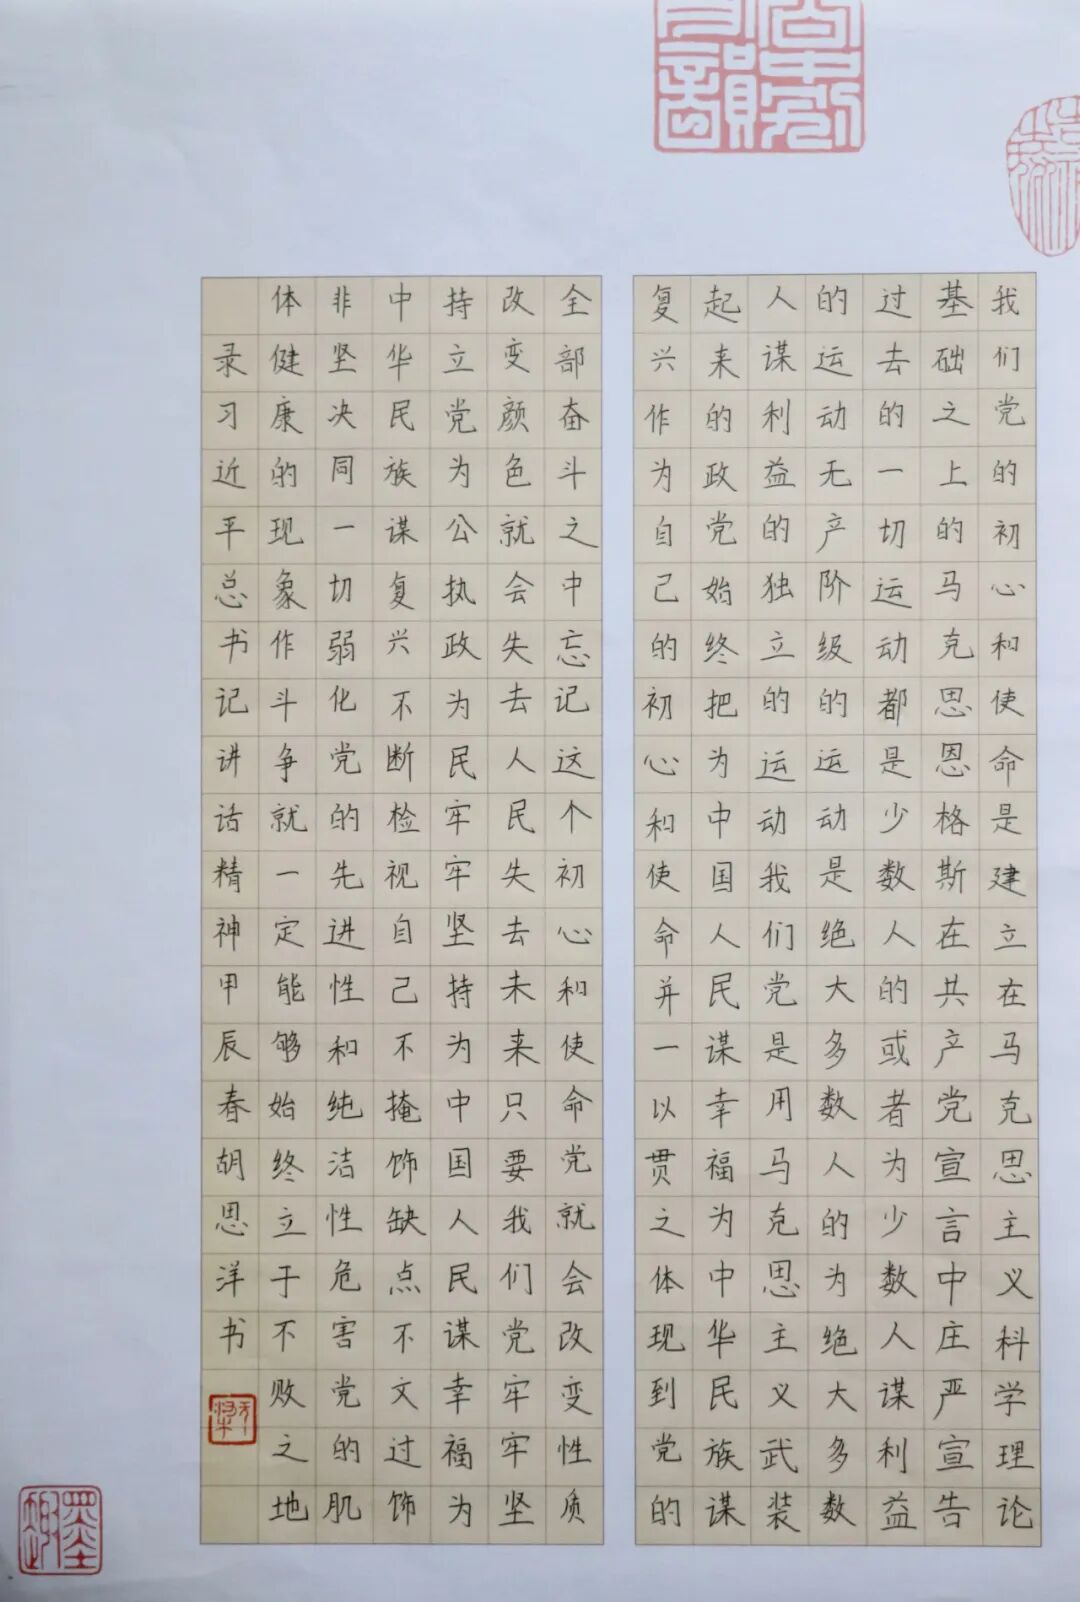 我们党的初心和使命是建立在马克思主义科学理论
基础之上的马克思恩格斯在共产党宣言中庄严宣告
过去的一切运动都是少数人的或者为少数人谋利益
的运动无产阶级的运动是绝大多数人的为绝大多数
人谋利益的独立的运动我们党是用马克思主义武装
起来的政党始终把为中国人民谋幸福为中华民族谋
复兴作为自己的初心和使命并一以贯之体现到党的
全部奋斗之中忘记这个初心和使命党就会改变性质
改变颜色就会失去人民失去未来只要我们党牢牢坚
持立党为公执政为民牢牢坚持为中国人民谋幸福为
中华民族谋复兴不断检视自己不掩饰缺点不文过饰
非坚决同一切弱化党的先进性和纯洁性危害党的肌
体健康的现象作斗争就一定能够始终立于不败之地
录习近平总书记讲话精神甲辰春胡思洋书